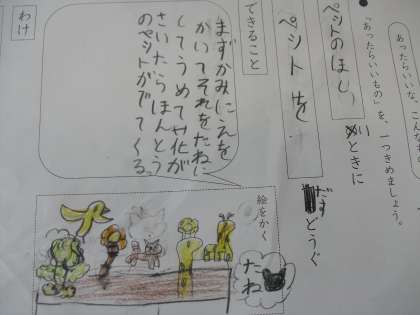 あったらいいな、こんなも
「あったらいいもの」を、一つきめましょう。
ペットのほしい
ときに
ペットを
だす
どうぐ
できること
まずかみにえを
かいてそれをたねに
してうめてや花が
さいたらほんとう
のペットがでてくる。
わけ
絵をかく
たね